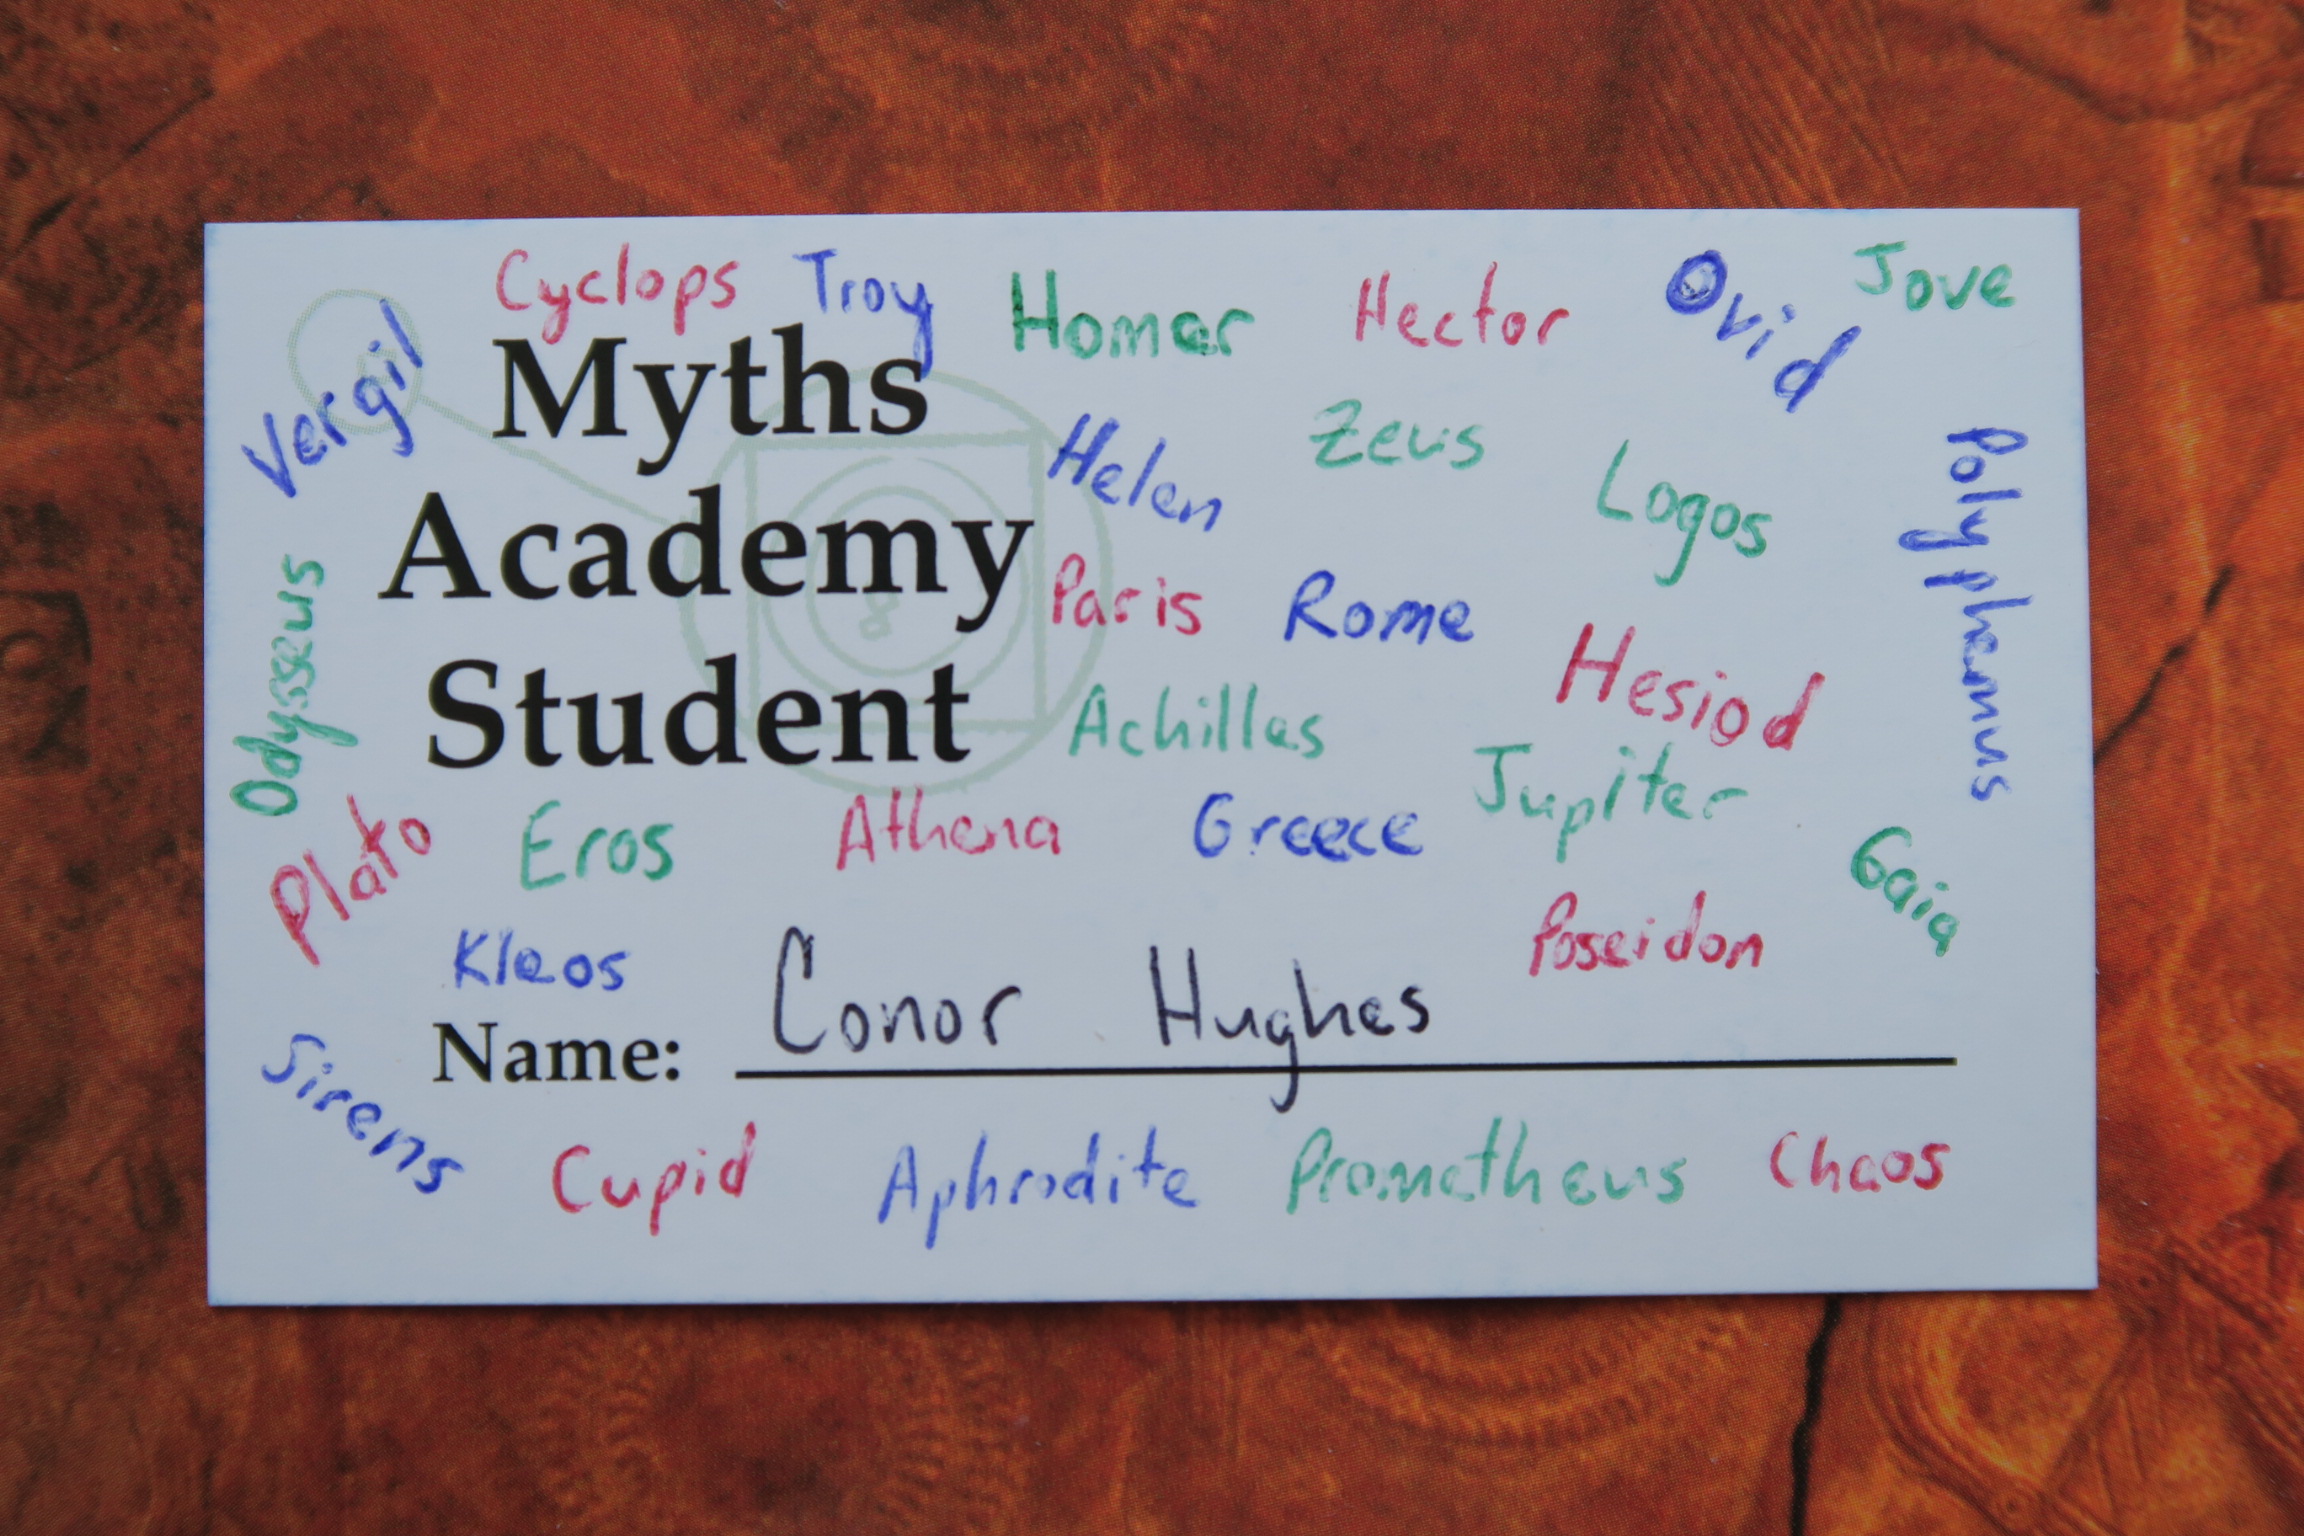 Cyclops Troy Homer Hector Ovid Jove
Vergil
Myths
Helen Zeus Logos Polyphemus
Academy
Paris Rome Hesiod
Odysseus
Student
Achilles Jupiter
Plato Eros Athena Greece Gaia
Kleos Poseidon
Name: Conor Hughes
Sirens
Cupid Aphrodite Prometheus Chaos
8